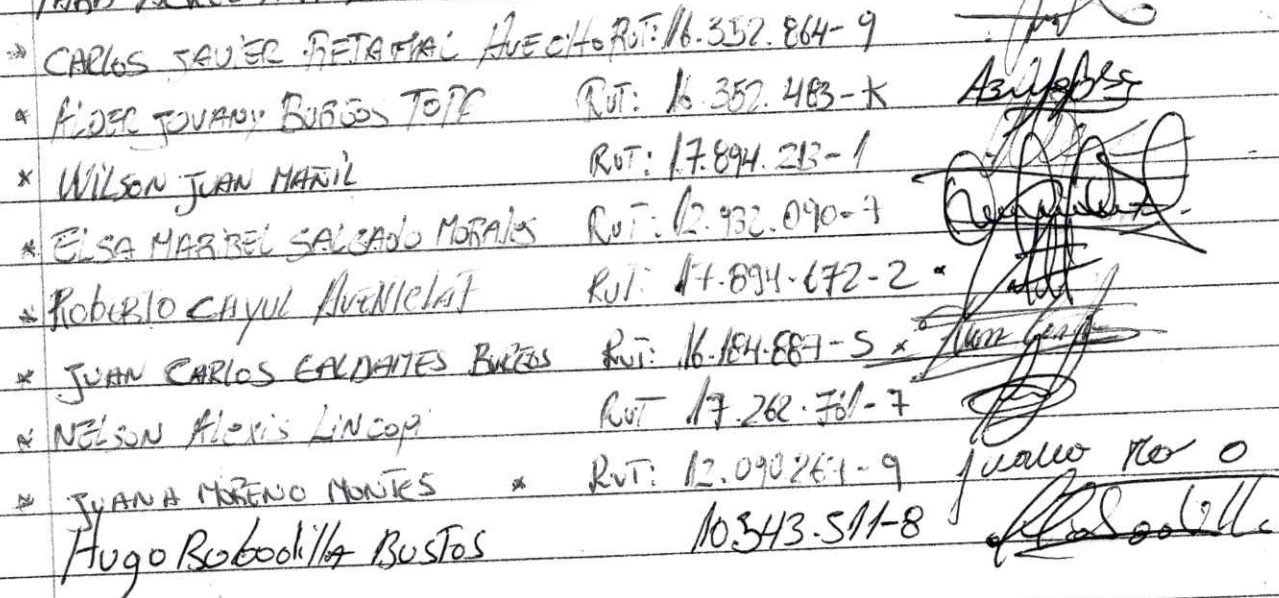 * CARLOS JAVIER RETAMAL HUECHO RUT: 16.352.864-9
* ALDER JOVANY BURGOS TORC RUT: 16.352.483-K
* WILSON JUAN MAÑIL RUT: 17.894.213-1
* ELSA MARIBEL SALGADO MORALES RUT: 12.932.090-7
* ROBERTO CAYUL RUT: 17.894.672-2
* JUAN CARLOS GALDAMES BURGOS RUT: 16.184.887-5
* NELSON Alexis LiNCOPi RUT 17.262.761-7
* JUANA MORENO MONTES * RUT: 12.090261-9 Juana Mor o
Hugo Bobadilla BUSTOS 10.543.511-8